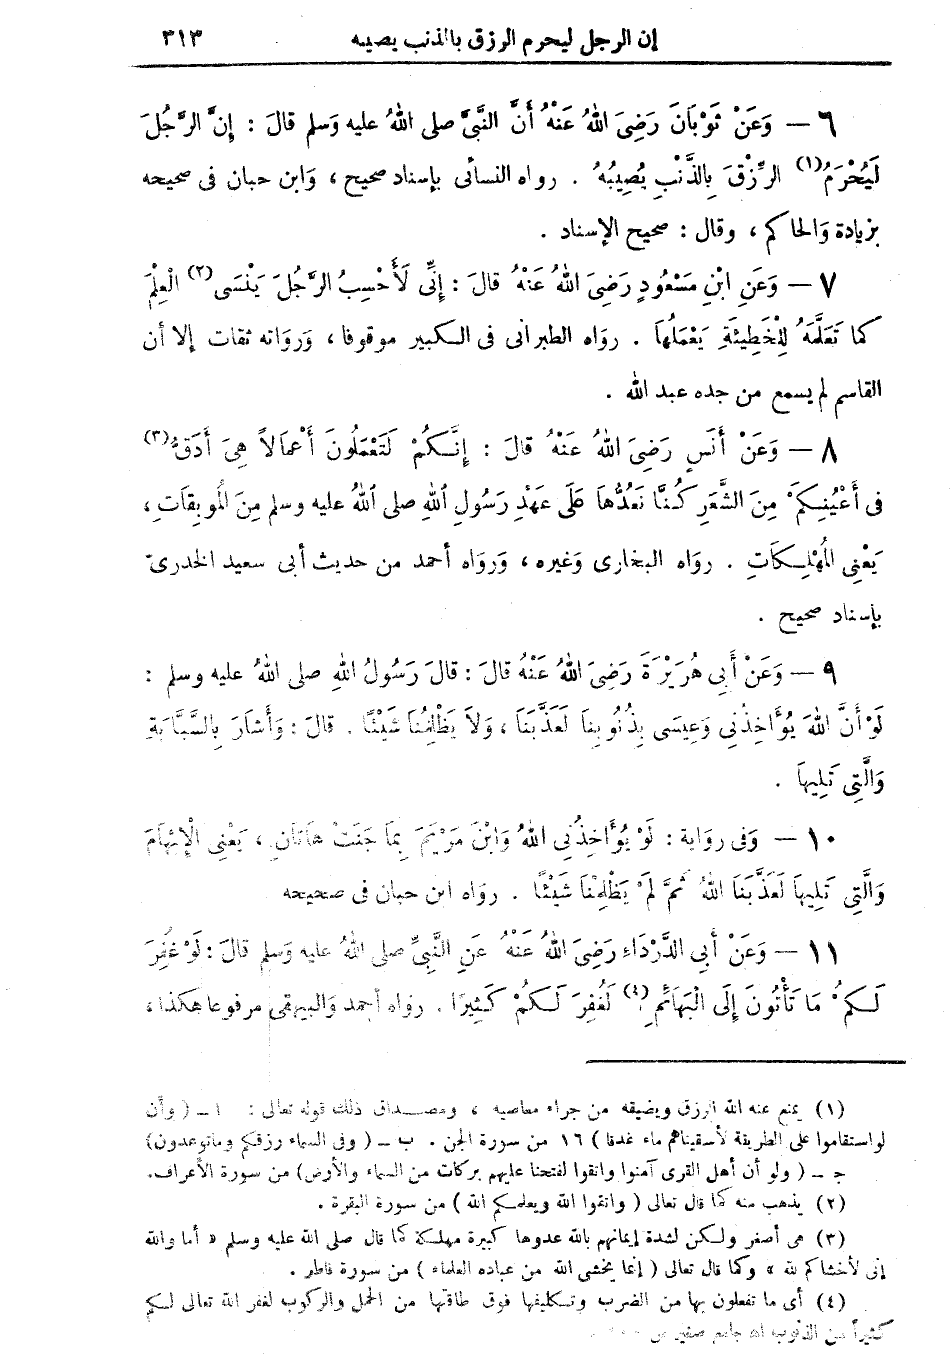 إن الرجل ليحرم الرزق بالذنب يصيبه ٣١٣
٦ — وَعَنْ ثَوْبَانَ رَضِىَ اللهُ عَنْهُ أَنَّ النَّبِىَّ صلى اللهُ عليه وَسلم قالَ : إِنَّ الرَّجُلَ
لَيُحْرَمُ(١) الرِّزْقَ بِالذَّنْبِ يُصِيبُهُ . رواه النسائى بإسناد صحيح ، وَابن حبان فى صحيحه
بزيادة وَالحاكم ، وقال : صحيح الإسناد .
٧ — وَعَنِ ابْنِ مَسْعُودٍ رَضِىَ اللهُ عَنْهُ قالَ : إِنِّى لَأَحْسِبُ الرَّجُلَ يَنْسَى(٢) الْعِلْمَ
كما تَعَلَّمَهُ لِلْخَطِيئَةِ يَعْمَلُهَا . روَاه الطبرانى فى الكبير موقوفا ، وَروَاته ثقات إلا أن
القاسم لم يسمع من جده عبد الله .
٨ — وَعَنْ أَنَسٍ رَضِىَ اللهُ عَنْهُ قالَ : إِنَّكُمْ لَتَعْمَلُونَ أَعْمَالاً هِىَ أَدَقُّ(٣)
فى أَعْيُنِكُمْ مِنَ الشَّعَرِ كُنَّا نَعُدُّهَا عَلَى عَهْدِ رَسُولِ اللهِ صلى اللهُ عليه وسلم مِنَ الْمُوبِقَاتِ ،
يَعْنِى الْمُهْلِكَاتِ . روَاه البخارى وَغيره ، وَروَاه أحمد من حديث أبى سعيد الخدرىّ
بإسناد صحيح .
٩ — وَعَنْ أَبِى هُرَيْرَةَ رَضِىَ اللهُ عَنْهُ قالَ : قالَ رَسُولُ اللهِ صلى اللهُ عليه وسلم :
لَوْ أَنَّ اللهَ يُؤَاخِذُنِى وَعِيسَى بِذُنُوبِنَا لَعَذَّبَنَا ، وَلاَ يَظْلِمُنَا شَيْئًا . قالَ : وَأَشَارَ بِالسَّبَّابَةِ
وَالَّتِى تَلِيهَا .
١٠ — وَفى روَاية : لَوْ يُؤَاخِذُنِى اللهُ وَابْنَ مَرْيَمَ بِمَا جَنَتْ هَاتَانِ ، يَعْنِى الْإِبْهَامَ
وَالَّتِى تَلِيهَا لَعَذَّبَنَا اللهُ ثُمَّ لَمْ يَظْلِمْنَا شَيْئًا . روَاه ابن حبان فى صحيحه
١١ — وَعَنْ أَبِى الدَّرْدَاءِ رَضِىَ اللهُ عَنْهُ عَنِ النَّبِىِّ صلى اللهُ عليه وَسلم قالَ : لَوْ غُفِرَ
لَكُمْ مَا تَأْتُونَ إِلَى الْبَهَائِمِ(٤) لَغُفِرَ لَكُمْ كَثِيرًا . روَاه أحمد وَالبيهقى مرفوعا هكذا ،
(١) يمنع عنه الله الرزق ويضيقه من جراء معاصيه ، ومصداق ذلك قوله تعالى : ١ — ( وأن
لو استقاموا على الطريقة لأسقيناهم ماء غدقا ) ١٦ من سورة الجن . ب — ( وفى السماء رزقكم وما توعدون)
ج — ( ولو أن أهل القرى آمنوا واتقوا لفتحنا عليهم بركات من السماء والأرض) من سورة الأعراف.
(٢) يذهب منه كما قال تعالى ( واتقوا الله ويعلمكم الله ) من سورة البقرة .
(٣) هى أصغر ولكن لشدة إيمانهم بالله عدوها كبيرة مهلكة كما قال صلى الله عليه وسلم « أما والله
إنى لأخشاكم لله » وكما قال تعالى ( إنما يخشى الله من عباده العلماء ) من سورة فاطر .
(٤) أى ما تفعلون بها من الضرب وتكليفها فوق طاقتها من الحمل والركوب لغفر الله تعالى لكم
كثيراً من الذنوب اه جامع صغير ص